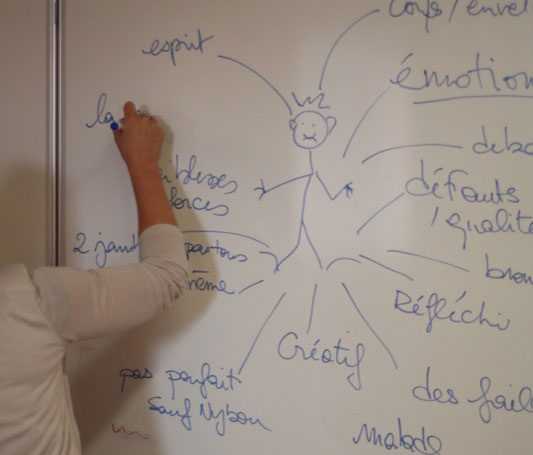 corps/envel
esprit
émotion
la
deba
faiblesses
forces
défauts
/qualité
2 jam
partous
même
bron
Réfléchi
Créatif
pas parfait
Sauf Nybou
des fail
Malade